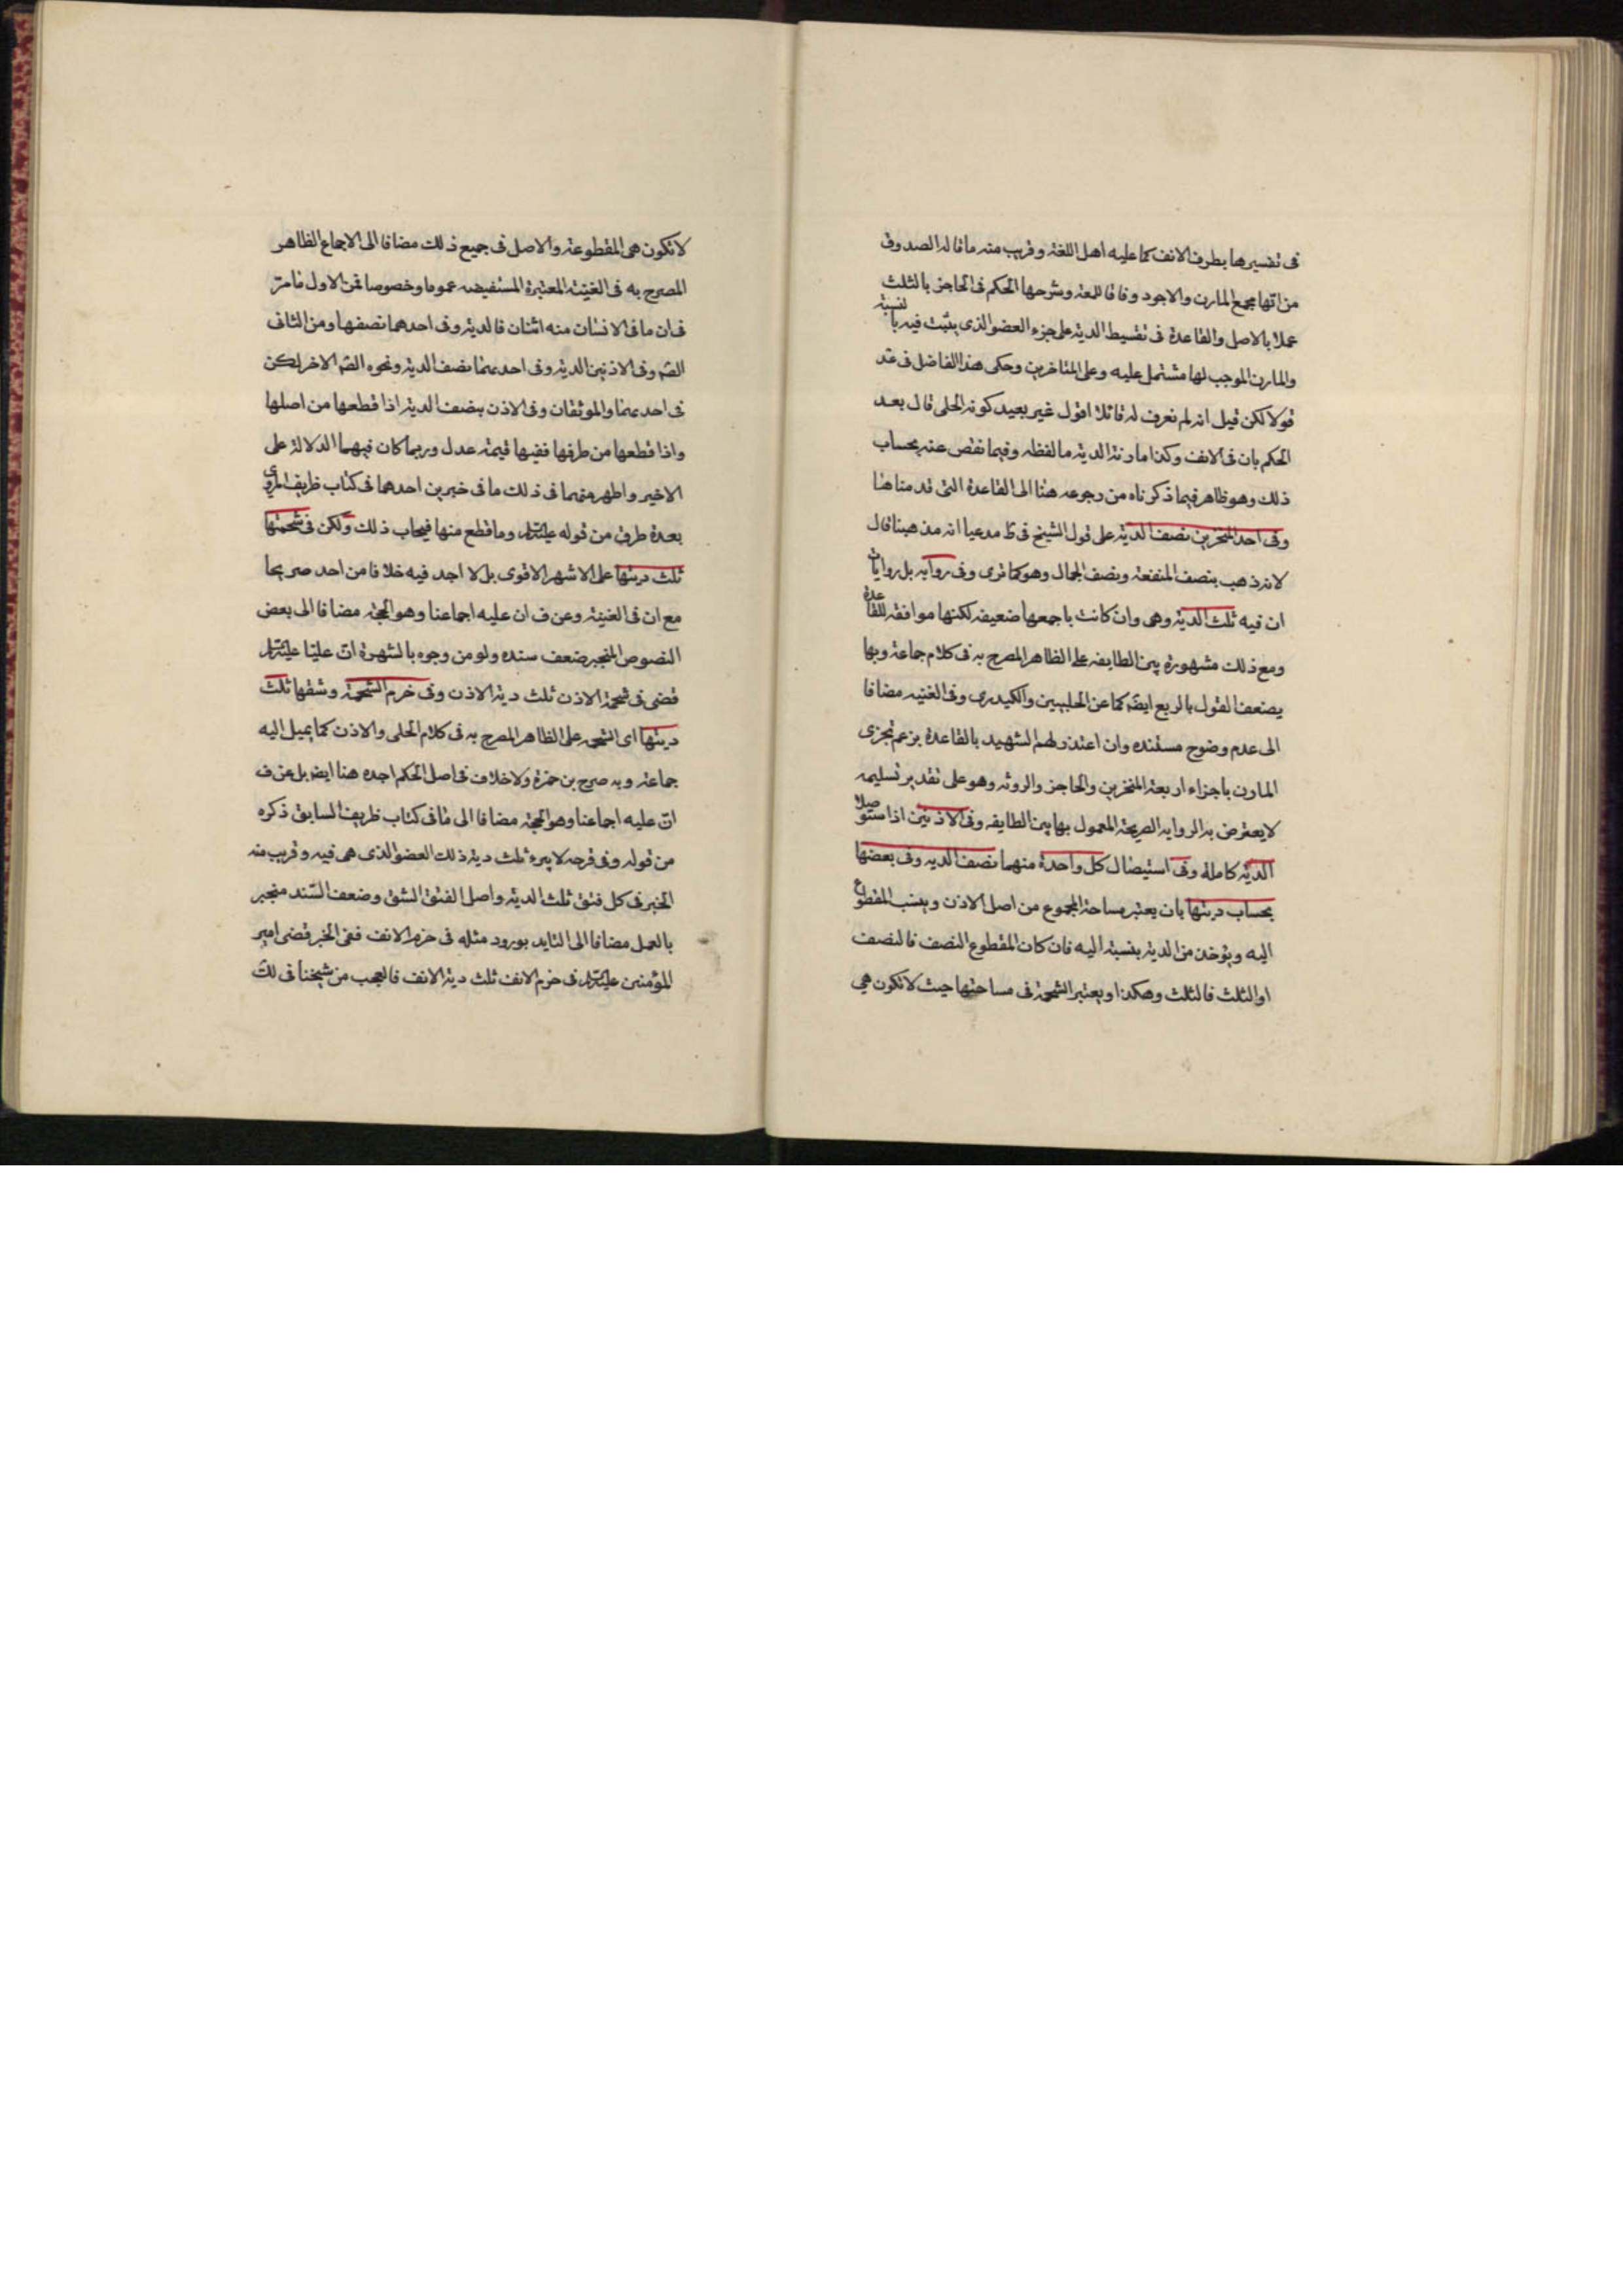 فى تفسيرها بطرف الانف كما عليه اهل اللغة وقريب منه ما قاله الصدوق
من انها مجمع المارن والاجود وفاقا للمعة وشرحها الحكم فى الحاجز بالثلث
عملا بالاصل والقاعدة فى تقسيط الدية على جزء العضو الذى يثبت فيه بالنسبة
والمارن الموجب لها مشتمل عليه وعلى المتاخرين وحكى هذا الفاضل فى عد
قولا لكن قيل انه لم نعرف له قائلا اقول غير بعيد كونه الحلى قال بعد
الحكم بان فى الانف وكذا مارنة الدية ما لفظه وفيما نقص عنه بحساب
ذلك وهو ظاهر فيما ذكرناه من رجوعه هنا الى القاعدة التى قدمناها
وفى احد المنخرين نصف الدية على قول الشيخ فى ط مدعيا انه مذهبنا قال
لانه ذهب بنصف المنفعة ونصف الجمال وهو كما ترى وفى رواية بل روايات
ان فيه ثلث الدية وهى وان كانت باجمعها ضعيفه لكنها موافقه للقاعدة
ومع ذلك مشهورة بين الطايفه على الظاهر المصرح به فى كلام جماعة وبها
يضعف القول بالربع ايضا كما عن الحلبيين والكيدرى وفى الغنيه مضافا
الى عدم وضوح مستنده وان اعتذر لهم الشهيد بالقاعدة بزعم تجزى
المارن باجزاء اربعة المنخرين والحاجز والروثه وهو على تقدير تسليمه
لا يعترض به الروايه الصريحة المعمول بها بين الطايفه وفى الاذنين اذا استوصلا
الدية كاملة وفى استيصال كل واحدة منهما نصف الديه وفى بعضها
بحساب ديتها بان يعتبر مساحة المجموع من اصل الاذن وينسب المقطوع
اليه ويؤخذ من الدية بنسبة اليه فان كان المقطوع النصف فالنصف
او الثلث فالثلث وهكذا ويعتبر الشحمة فى مساحتها حيث لا تكون هي
لا تكون هى المقطوعة والاصل فى جميع ذلك مضافا الى الاجماع الظاهر
المصرح به فى الغنية المعتبرة المستفيضه عموما وخصوصا فمن الاول ما مر
فى ان ما فى الانسان منه اثنان فالدية وفى احدهما نصفها ومن الثانى
الصم وفى الاذنين الدية وفى احديهما نصف الدية ونحوه الصم الاخر لكن
فى احديهما والموثقان وفى الاذن بنصف الدية اذا قطعها من اصلها
واذا قطعها من طرفها ففيها قيمة عدل وربما كان فيهما الدلالة على
الاخير واظهر منهما فى ذلك ما فى خبرين احدهما فى كتاب ظريف المروى
بعدة طرق من قوله عليه السلام وما قطع منها فبحساب ذلك ولكن فى شحمتها
ثلث ديتها على الاشهر الاقوى بل لا اجد فيه خلافا من احد صريحا
مع ان فى الغنية وعن ف ان عليه اجماعنا وهو الحجة مضافا الى بعض
النصوص المنجبر ضعف سنده ولو من وجوه بالشهرة ان عليا عليه السلام
قضى فى شحمة الاذن ثلث دية الاذن وفى خرم الشحمة وشقها ثلث
ديتها اى الشحمه على الظاهر المصرح به فى كلام الحلى والاذن كما يميل اليه
جماعة وبه صرح بن حمزة ولا خلاف فى اصل الحكم اجده هنا ايضا بل عن ف
ان عليه اجماعنا وهو الحجة مضافا الى ما فى كتاب ظريف السابق ذكره
من قوله وفى قرحه لا يبرء ثلث دية ذلك العضو الذى هى فيه وقريب منه
الخبر فى كل فتق ثلث الدية واصل الفتق الشق وضعف السند منجبر
بالعمل مضافا الى التايد بورود مثله فى خرم الانف ففى الخبر قضى امير
المؤمنين عليه السلام فى خرم الانف ثلث دية الانف فالعجب من شيخنا فى لك